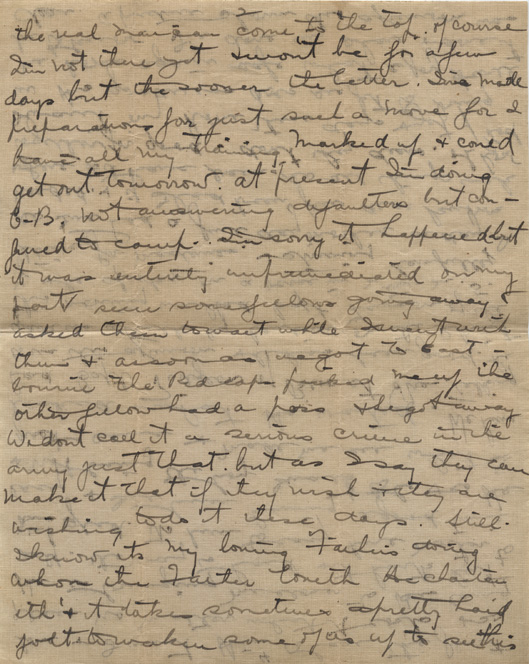 2
the real man can come to the top. of course
I'm not there yet & won't be for a few
days but the sooner the better. I've made
preparations for just such a move for I
have all my things marked up & could
get out tomorrow. at present I'm doing
C-B. not answering defaulters but con-
fined to camp. I'm sorry it happened but
it was entirely unpremediated on my
part seen some fellows going away &
asked them to wait while I went with
them & as soon as we got to East-
bourne the Red caps picked me up the
other fellow had a pass & he got away
We dont call it a serious crime in the
army just that. but as I say they can
make it that if they wish & they are
wishing to do it these days. Still
I know its my loving Father's doing
whom the Father loveth He chasten
eth & it takes sometimes a pretty hard
jolt to waken some of us up to see this